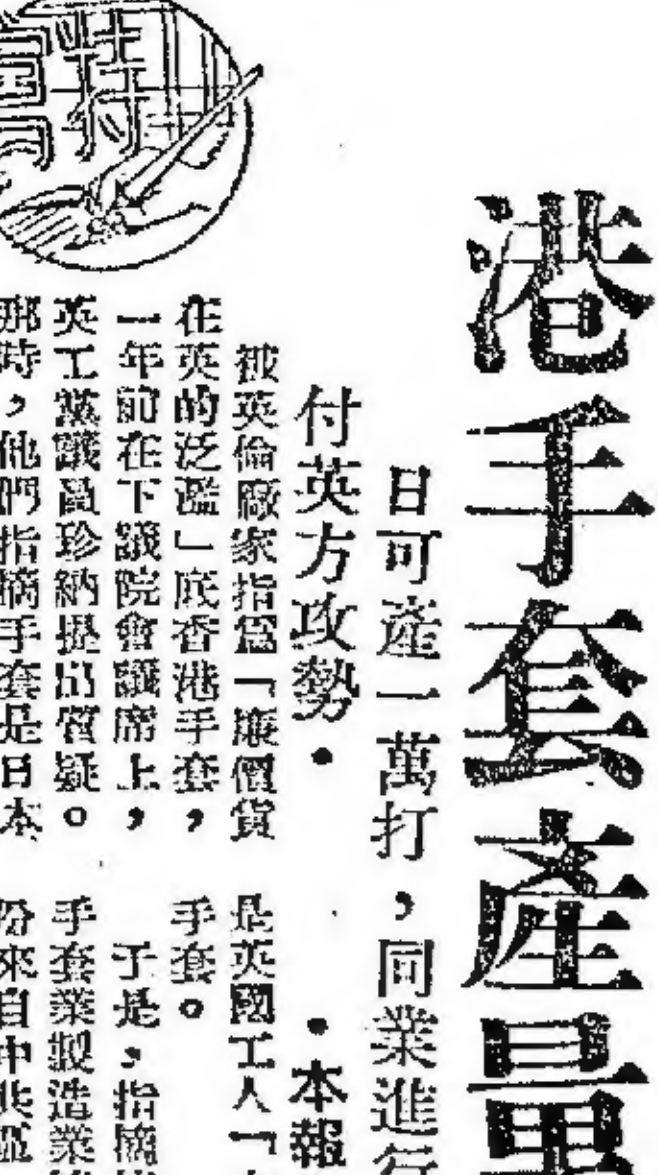 港手套產量
日可產一萬打，同業進行
付英方攻勢・
・本報
特寫
被英倫廠家指爲「廉價貨
在英的泛濫」底香港手套，
一年前在下議院會議席上，
英工黨議員珍納提出質疑。
那時，他們指摘手套是日本
是英國工人「
手套。
于是，指摘
手套業製造業
份來自中共區